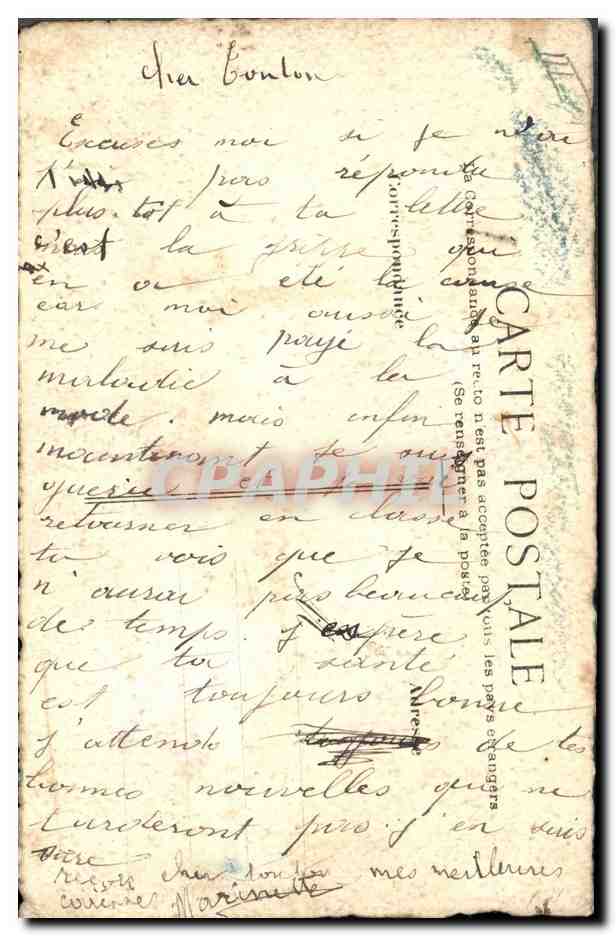 cher Tonton
Excuses moi si je n'ai
pas répondu
plus tôt à ta lettre
c'est la grippe qui
en a été la cause
car moi aussi je
me suis payé la
maladie à la
mode. mais enfin
maintenant je suis
guerie et j'ai pu
retourner en classe
tu vois que je
n'aurai pas beaucoup
de temps. j'espère
que ta santé
est toujours bonne
j'attends de tes
bonnes nouvelles qui ne
tarderont pas. j'en suis
sure
reçois cher tonton mes meilleures
caresses Marinette
CARTE POSTALE
La Correspondance au recto n'est pas acceptée par tous les pays etrangers
(Se renseigner à la poste)
Correspondance
Adresse
CPAPHIL